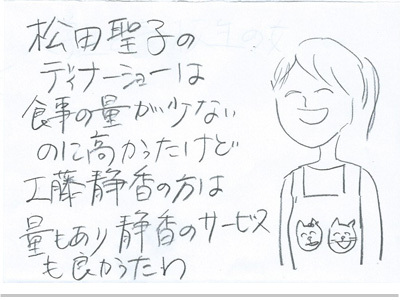 松田聖子の
ディナーショーは
食事の量が少ない
のに高かったけど
工藤静香の方は
量もあり静香のサービス
も良かったわ